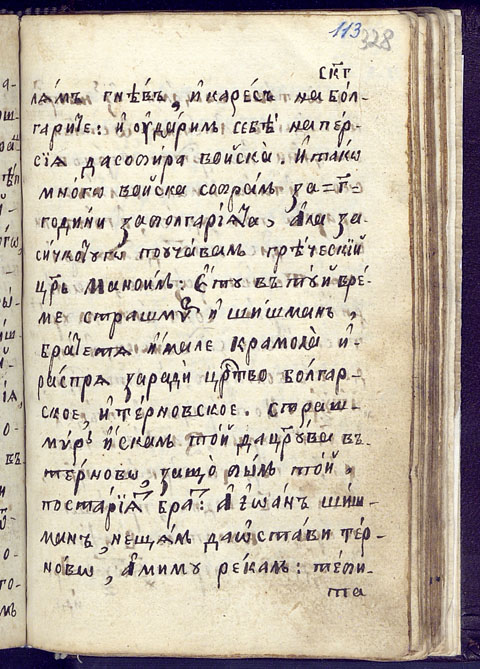 113 328
скг
лямъ гнѣвъ, и карезъ на бол-
гарите: и оударилъ себѣ на пер-
сїя да собира войска. И тако
много войска собралъ за =г҃=
години за болгарїята, ала за
сичкотуго поучавалъ греческїй
цр҃ь Маноилъ: Ету въ туй вре-
ме страшмур и шишманъ,
братетя имале крамола и-
распря заради цр҃тво болгар-
ское, и терновское. Страш-
муръ искалъ той да цр҃ува въ
терново, защо былъ той,
постарїят брат: А їѡанъ шиш-
манъ, нещялъ да остави тер-
ново, ами му рекалъ: теби-
та